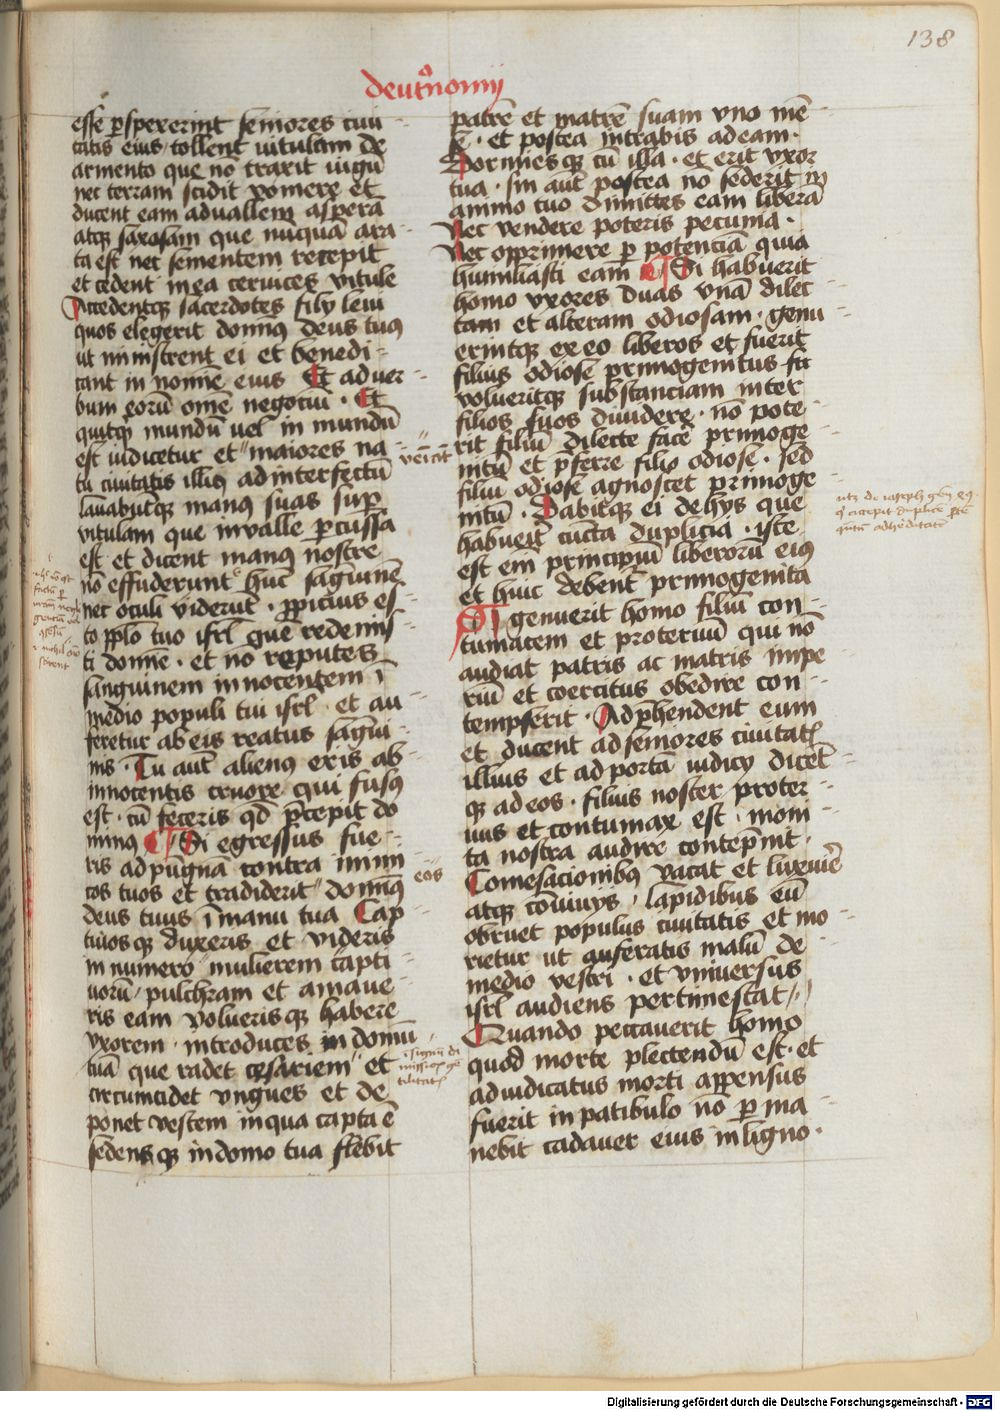 138
deutͦnomij
esse ꝑspexerint seniores ciui
tatis eius / tollent uitulam de
armento que nō traxit iugū
nec terram scidit vomere et
ducent eam ad uallem asperā
atqꝫ saxosam que nūquā ara
ta est nec sementem recepit
et cedent in ea ceruices vitule
Accedentqꝫ sacerdotes filij leui
quos elegerit domīꝰ deus tuꝰ
ut ministrent ei et benedi
cant in noīe eius Et ad uer
bum eorū omē negociū · Et
quitqͥd mundū uel inmundū
est iudicetur et maiores na
tu ciuitatis illiꝰ ad interfectū
lauabūtqꝫ manus suas suꝑ
vitulam que in valle ꝑcussa
est et dicent manus nostre
nō effuderunt hūc sāguinē
nec oculi viderūt · ꝓpicius es
to pplo tuo isrl que redemis
ti domīe · et nō reputes
sanguinem innocentem ī
medio populi tui isrl · et au
feretur ab eis reatus sāgui
nis · Tu aūt alienꝰ eris ab
innocentis cruore qui fusꝰ
est · cū feceris qd̄ p̄cepit do
minꝰ Si egressus fue
ris ad pugnā contra inimi
cos tuos et tradiderit domīꝰ
deus tuus ī manu tua Cap
tiuos qꝫ duxeris et videris
in numero mulierem capti
uorū / pulchram et amaue
ris eam volueris qꝫ habere
vxorem · introduces in domū
tuā que radet cesariem et
circumcidet vngues et de
ponet vestem in qua capta ē
sedens qꝫ in domo tua flebit
venerit
eos
· signū di
missiōis gē
tilitatꝭ
patrē et matrē suam vno mē
se · et postea intrabis ad eam ·
Dormies qꝫ cū illa · et erit vxor
tua · sin aūt postea nō sederit in
animo tuo dimittes eam liberā
Nec vendere poteris pecunia ·
Nec opprimere ꝑ potenciā quia
humiliasti eam Si habuerit
homo vxores duas vnā dilec
tam et alteram odiosam · genu
erintqꝫ ex eo liberos et fuerit
filius odiose primogenitus si
volueritqꝫ substanciam inter
filios suos diuidere · nō pote
rit filiū dilecte facē primoge
nitū et p̄ferre filio odiose · sed
filiū odiose agnoscet primoge
nitū · Dabitqꝫ ei de hys que
habuerit cūcta duplicia · iste
est em̄ principiū liberorū eiꝰ
et huic debent᷑ primogenita
Si genuerit homo filiū con
tumacem et proteruū qui nō
audiat patris ac matris impe
riū et coercitus obedire con
tempserit · Adp̄hendent eum
et ducent ad seniores ciuitatꝭ
illius et ad portā iudicij dicēt
qꝫ ad eos · filius noster proter
uus et contumax est · moni
ta nostra audire contepnit ·
Comesacionibꝫ vacat et luxurie
atqꝫ cōuiuijs / lapidibus eū
obruet populus ciuitatis et mo
rietur ut auferatis malū de
medio vestri · et vniuersus
isrl audiens pertimescat //
Quando peccauerit homo
quod morte plectendū est · et
adiudicatus morti appensus
fuerit in patibulo nō ꝑma
nebit cadauer eius in ligno ·
Digitalisierung gefördert durch die Deutsche Forschungsgemeinschaft - DFG